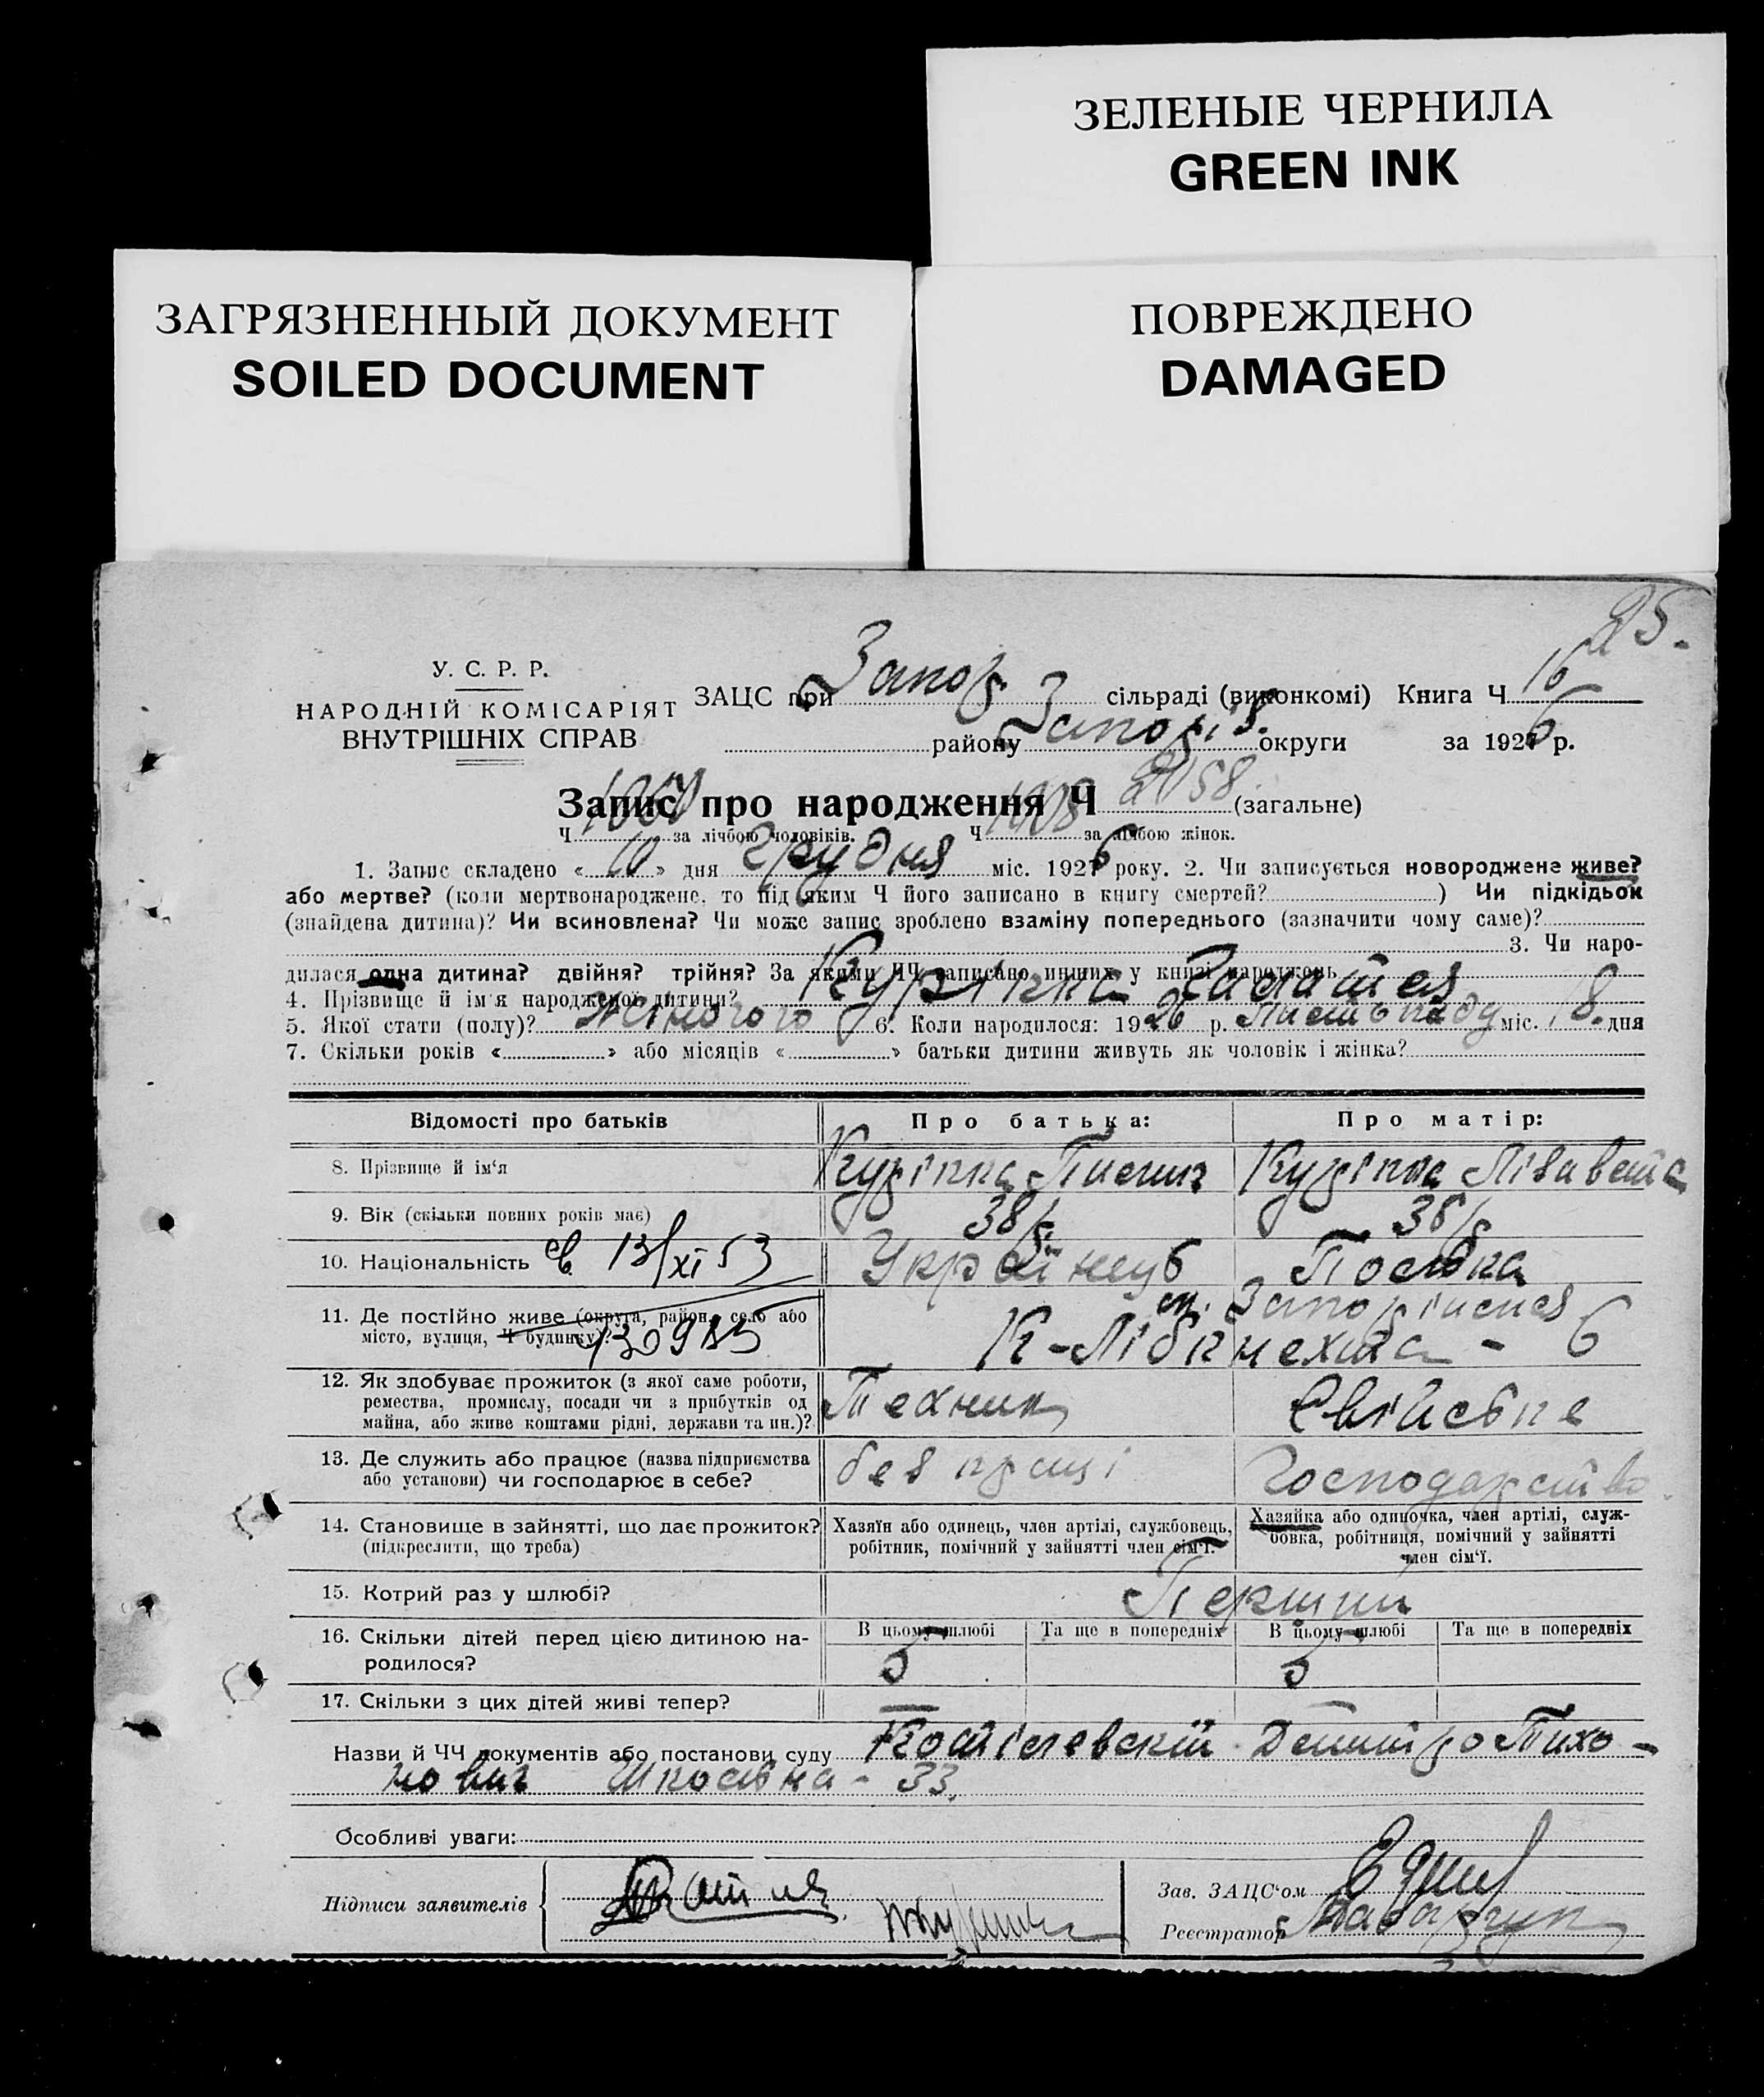 ЗЕЛЕНЫЕ ЧЕРНИЛА
GREEN INK
ЗАГРЯЗНЕННЫЙ ДОКУМЕНТ
SOILED DOCUMENT
ПОВРЕЖДЕНО
DAMAGED
25.
У. С. Р. Р.
НАРОДНІЙ КОМІСАРІЯТ
ВНУТРІШНІХ СПРАВ
ЗАЦС при Запор. сільраді (виконкомі) Книга Ч 16
району Запоріз. округи за 1926 р.
Запис про народження Ч 2058 (загальне)
Ч 1050 за лічбою чоловіків. Ч 1008 за лічбою жінок.
1. Запис складено « 10 » дня Грудня міс. 1926 року. 2. Чи записується новороджене живе?
або мертве? (коли мертвонароджене, то під яким Ч його записано в книгу смертей? ) Чи підкідьок
(знайдена дитина)? Чи всиновлена? Чи може запис зроблено взаміну попереднього (зазначити чому саме)?
3. Чи наро-
дилася одна дитина? двійня? трійня? За якими ЧЧ записано инших у книзі народжень
4. Прізвище й ім'я народженої дитини? Курінна
5. Якої стати (полу)? Жіночого 6. Коли народилося: 1926 р. Листопаду міс. 18. дня
7. Скільки років « » або місяців « » батьки дитини живуть як чоловік і жінка?
Відомості про батьків Про батька: Про матір:
8. Прізвище й ім'я Курінна Курінна Лізавета
9. Вік (скільки повних років має) 38/р. 38/р
10. Національність св. 13/XI 53 Українець Полька
11. Де постійно живе (округа, район, село або ст. Запоріжжя
місто, вулиця, Ч будинку)? 730985 К-Лібкнехта - 6
12. Як здобуває прожиток (з якої саме роботи,
ремества, промислу, посади чи з прибутків од
майна, або живе коштами рідні, держави та ин.)? Технік Свійське
13. Де служить або працює (назва підприємства
або установи) чи господарює в себе? без праці Господарство.
14. Становище в зайнятті, що дає прожиток?
(підкреслити, що треба)
Хазяїн або одинець, член артілі, службовець,
робітник, помічний у зайнятті член сім'ї.
Хазяйка або одиночка, член артілі, служ-
бовка, робітниця, помічний у зайнятті
член сім'ї.
15. Котрий раз у шлюбі? Перший
16. Скільки дітей перед цією дитиною на-
родилося?
В цьому шлюбі Та ще в попередніх В цьому шлюбі Та ще в попередніх
5 5
17. Скільки з цих дітей живі тепер?
Назви й ЧЧ документів або постанови суду Дмитро Тихо-
нович Шкільна - 33.
Особливі уваги:
Підписи заявителів
Зав. ЗАЦС'ом
Реєстратор